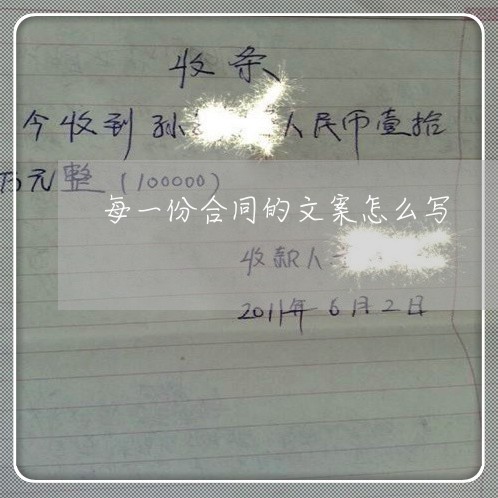 收条
今收到孙 人民币壹拾
万元整(100000)
每一份合同的文案怎么写
收款人
2011年6月2日